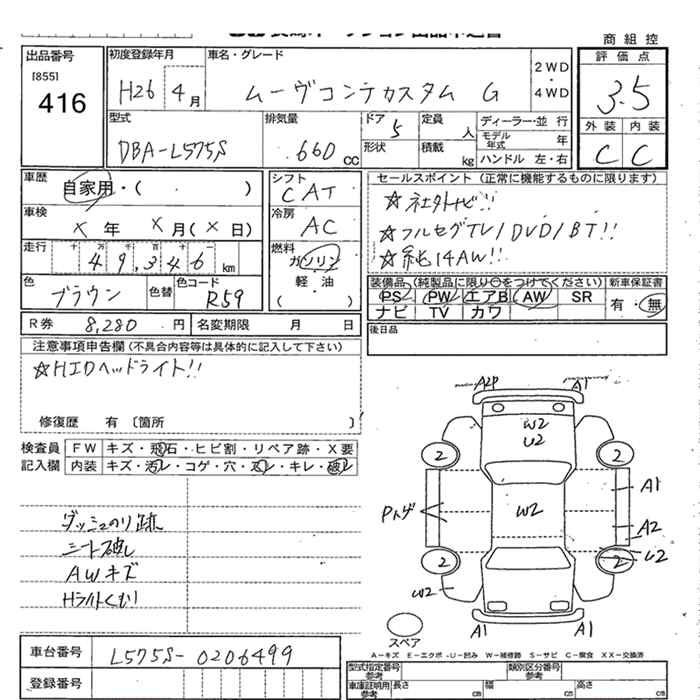 商 組 控
出品番号
[855]
416
初度登録年月
H26 4月
車名・グレード
ムーヴコンテカスタム G
2WD
・
4WD
評 価 点
3.5
外 装 内 装
C C
型式
DBA-L575S
排気量
.660cc
ドア
5
形状
定員
人
積載
kg
ディーラー・並 行
モデル年式 年
ハンドル 左・右
車歴
自家用・( )
車検
X 年 X 月(X 日)
走行
十 万 千 百 十 一
49,346 km
色
ブラウン
色替
色コード
R59
シフト
CAT
冷房
AC
燃料
ガソリン
軽・油
( )
セールスポイント (正常に機能するものに限ります)
☆社外ナビ!!
☆フルセグTV/DVD/BT!!
☆純14AW!!
装備品(純製品に限り○をつけてください)
PS PW エアB AW SR
ナビ TV カワ
新車保証書
有・無
後日品
R券 8,280 円
名変期限 月 日
注意事項申告欄 (不具合内容等は具体的に記入して下さい)
☆HIDヘッドライト!!
修復歴 有 〔箇所 〕
検査員
記入欄
FW キズ・飛石・ヒビ割・リペア跡・X要
内装 キズ・汚レ・コゲ・穴・スレ・キレ・破レ
ダッシュのり跡
シート破レ
AWキズ
Hライトくもり
A2P A1
W2
U2
2 2
W2
Pハゲ
A1
A2
U2
2 2
W2
A1 A1
スペア
A−キズ E−エクボ -U−凹み W−補修跡 S−サビ C−腐食 XX−交換済
車台番号
L575S-0206499
登録番号
型式指定番号
参考
類別区分番号
参考
車庫証明用
参考
長さ cm
幅 cm
高さ cm